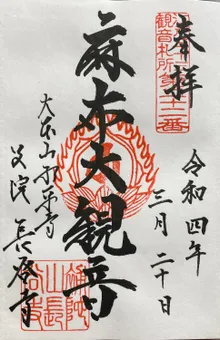 奉拝
江戸
観音札所第二十二番
令和四年
三月二十日
麻布大観音
大本山永平寺
別院 長谷寺
補陀
山長
谷寺